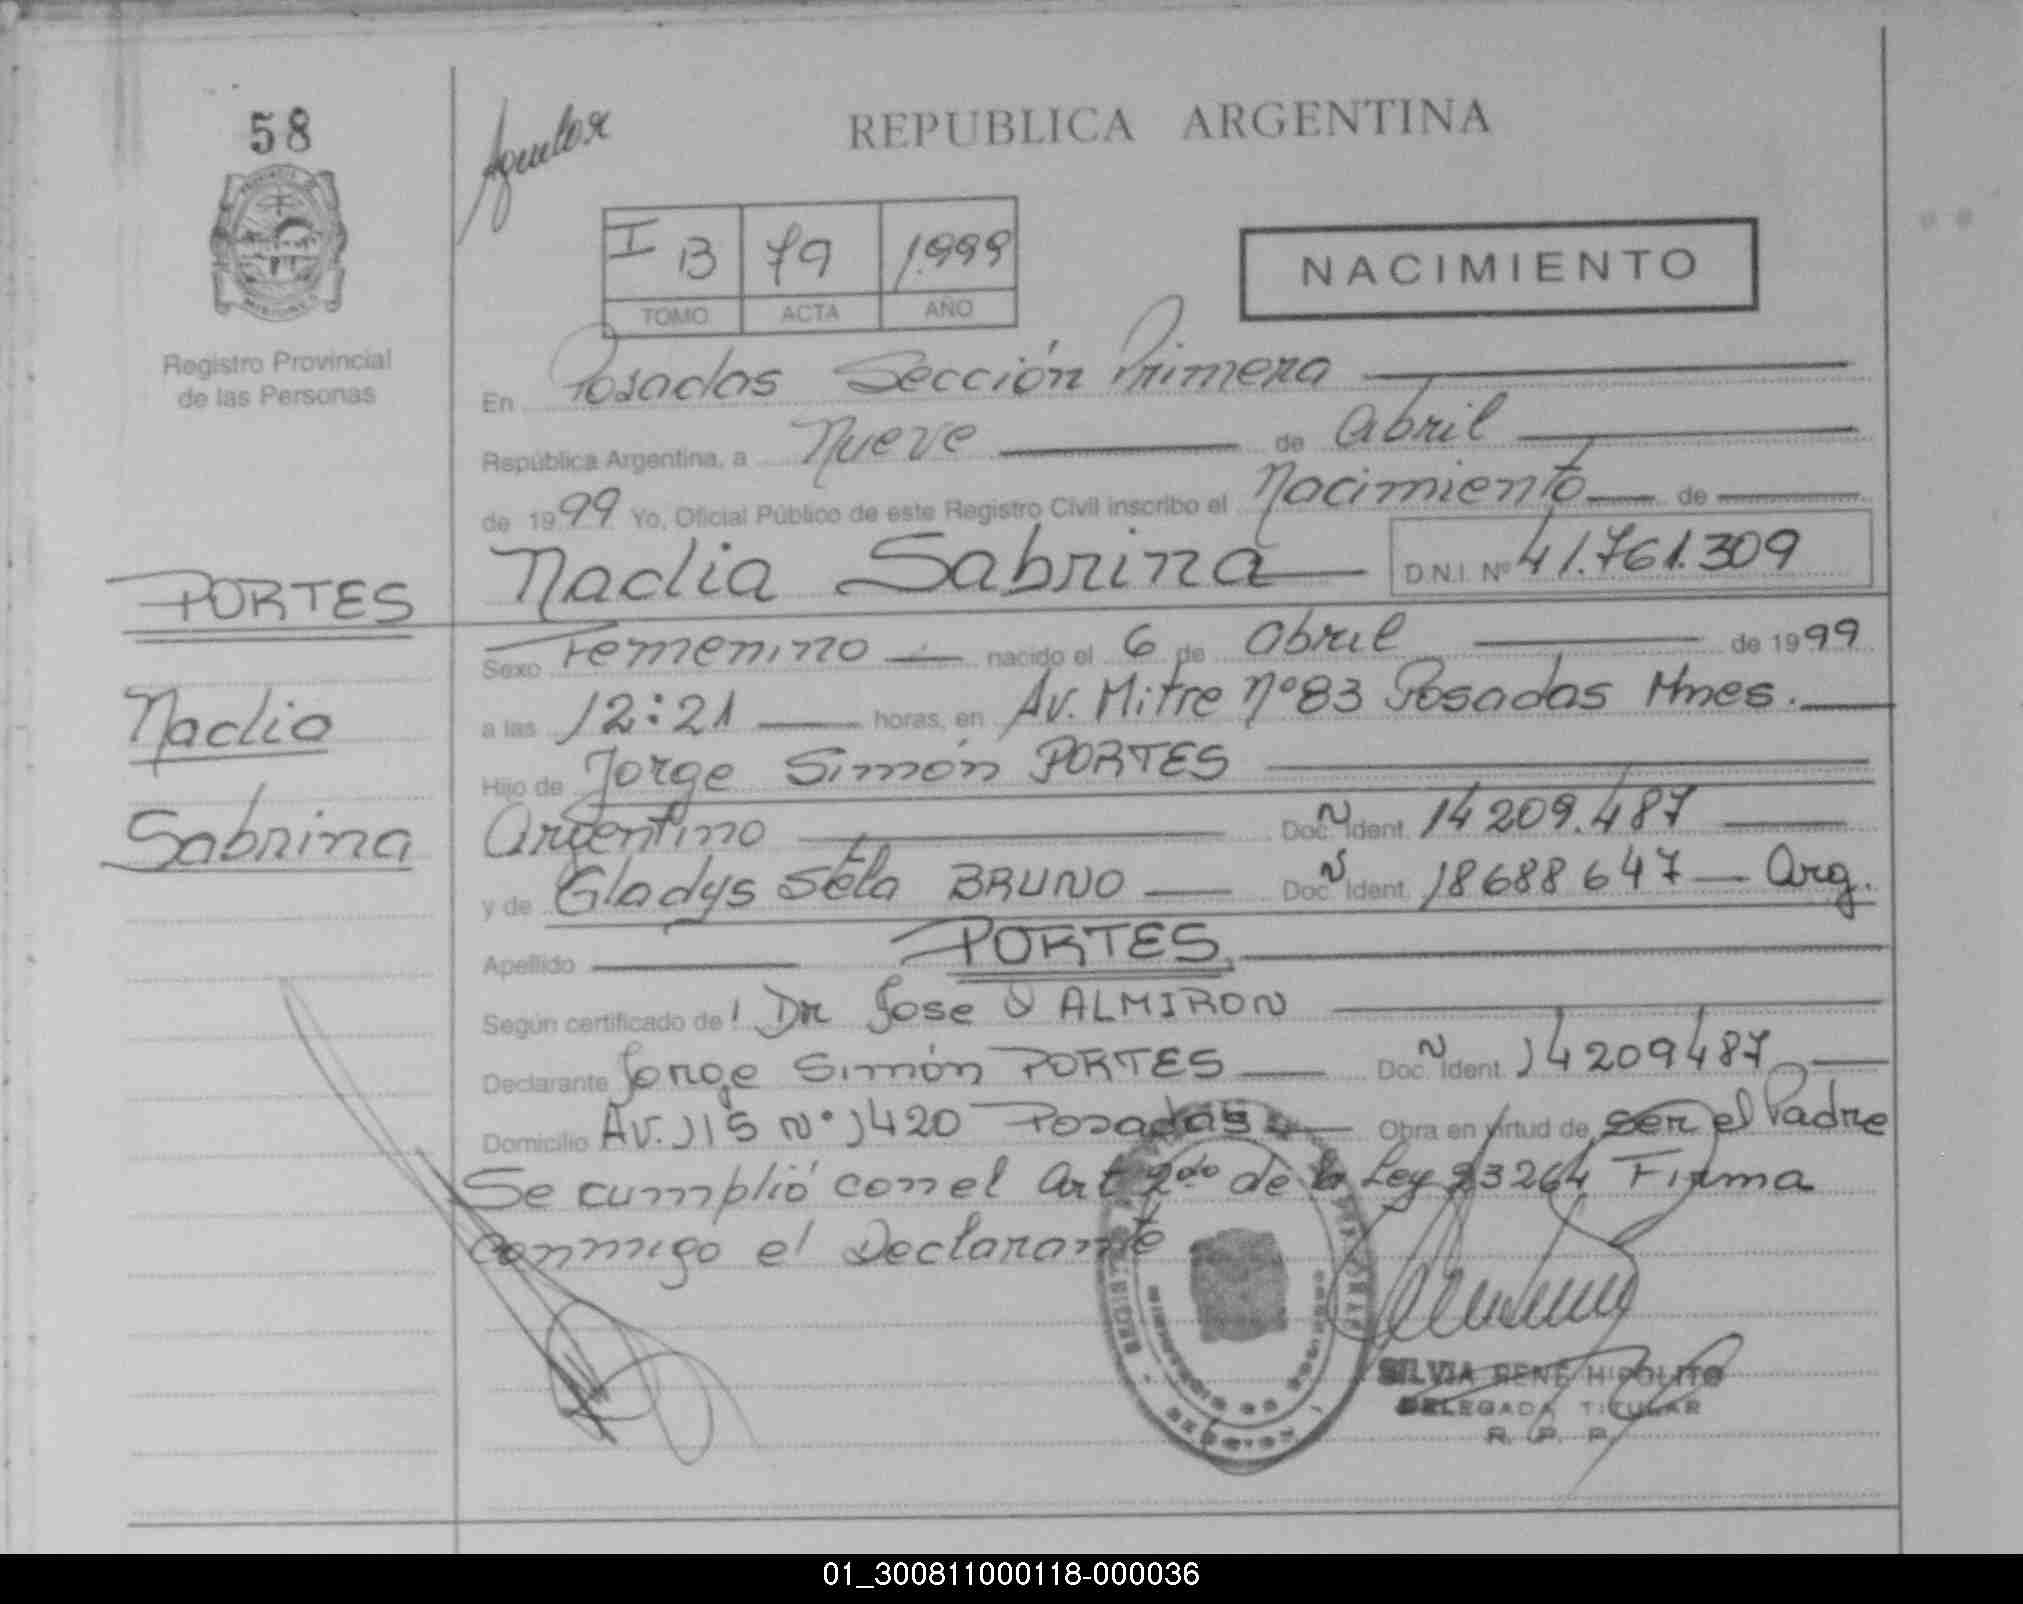 58
REPUBLICA ARGENTINA
I B 79 1.999
TOMO ACTA AÑO
NACIMIENTO
Registro Provincial
de las Personas
En Posadas Sección Primera
República Argentina, a Nueve de abril
de 1999 Yo, Oficial Público de este Registro Civil inscribo el Nacimiento de
Nadia Sabrina D.N.I. Nº 41.761.309
PORTES
Nadia
Sabrina
Sexo Femenino nacido el 6 de abril de 1999
a las 12:21 horas, en Av. Mitre nº 83 Posadas Mnes.
Hijo de Jorge Simón PORTES
Argentino Doc. N Ident. 14209.487
y de Gladys BRUNO Doc. N Ident. 18688647 Arg.
Apellido PORTES
Según certificado de Dr Jose ALMIRON
Declarante Jorge Simón PORTES Doc. N Ident. 14209487
Domicilio Av. 115 Nº 1420 Posadas Obra en virtud de ser el Padre
Se cumplió con el Art 2do de la Ley 23264 Firma
conmigo el Declarante
SILVIA RENE HIPOLITO
DELEGADA TITULAR
R. P. P.
01_300811000118-000036